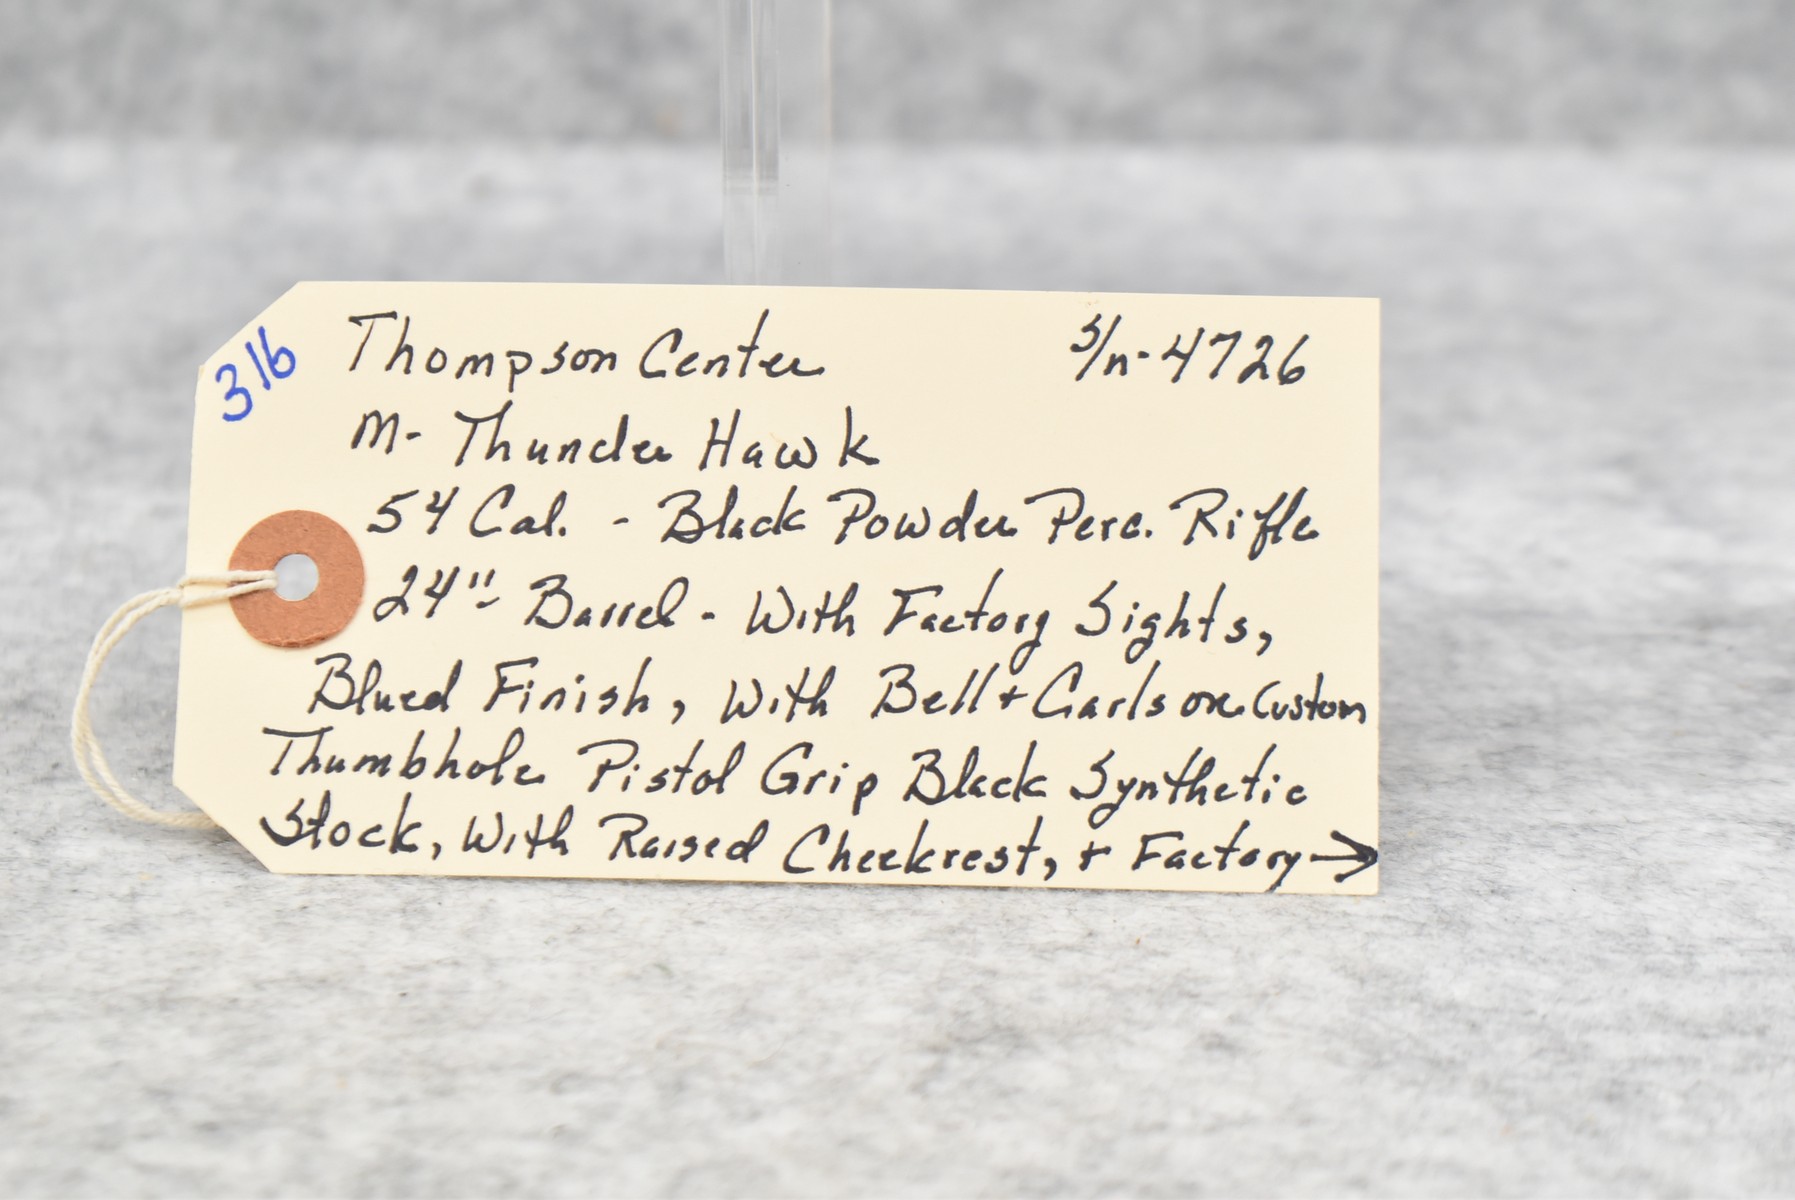 316
Thompson Center S/n-4726
M- Thunder Hawk
54 Cal. - Black Powder Perc. Rifle
24"- Barrel - With Factory Sights,
Blued Finish, With Bell + Carlson Custom
Thumbhole Pistol Grip Black Synthetic
Stock, With Raised Cheekrest, + Factory →